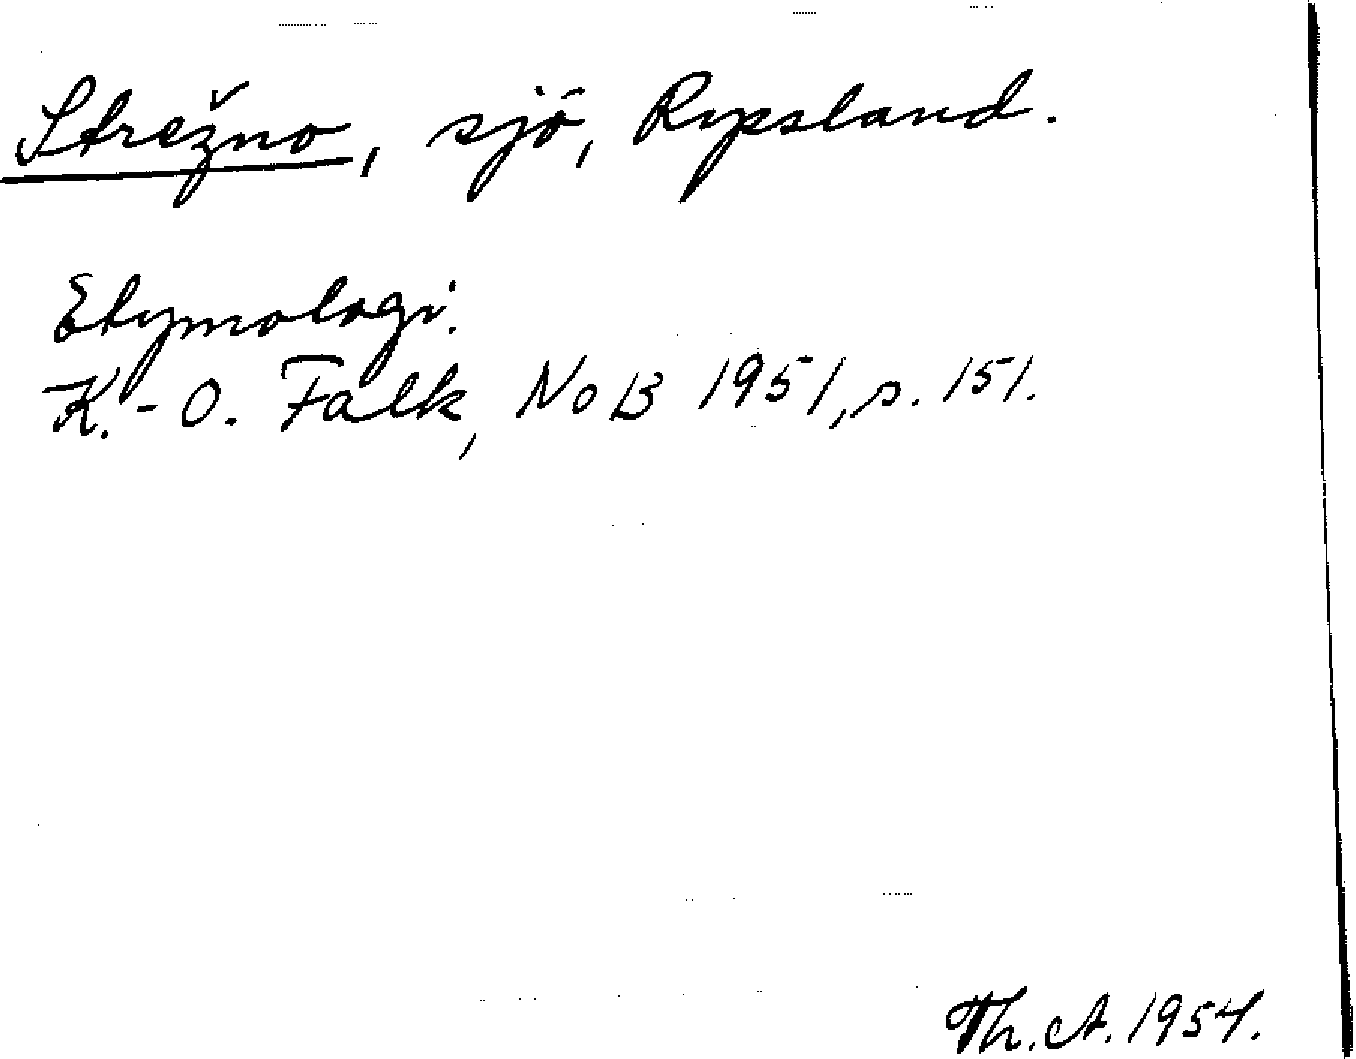 Strežno, sjö, Ryssland.
Etymologi.
K.-O. Falk, NoB 1951, s. 151.
Th. A. 1954.